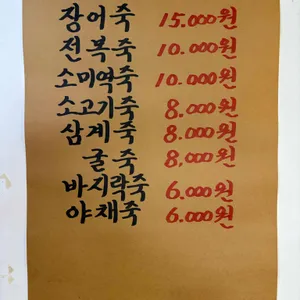 장어죽 15.000원
전복죽 10.000원
소미역죽 10.000원
소고기죽 8.000원
삼계죽 8.000원
굴죽 8,000원
바지락죽 6.000원
야채죽 6.000원